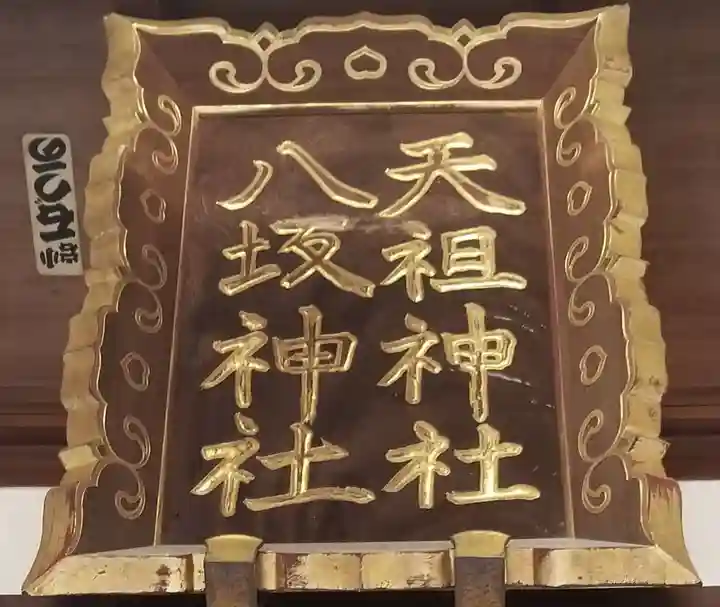 天祖神社
八坂神社